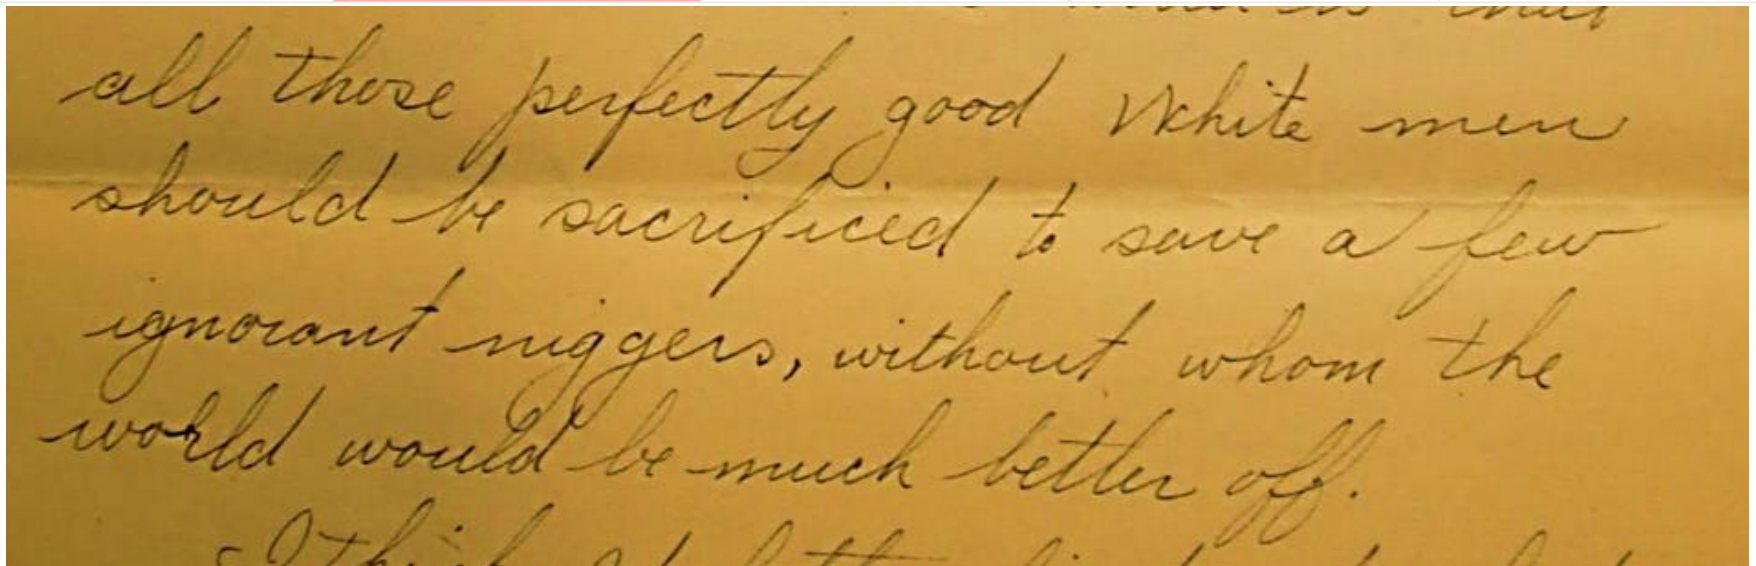 all those perfectly good White men
should be sacrificed to save a few
ignorant niggers, without whom the
world would be much better off.
I think